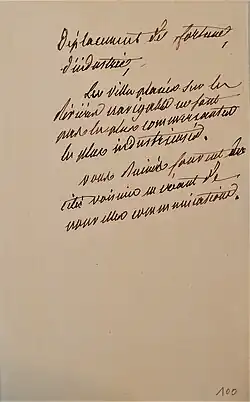 Déplacement de fortune
d'industrie,
Les villes placées sur les
Rivières navigables ne sont
pas les plus commerçantes
les plus industrieuses.
vous Ruinés souvent des
cités voisines en créant de
nouvelles communications.
100